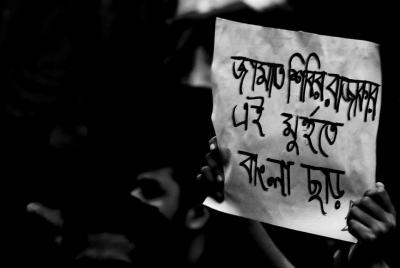 জামাত শিবির রাজাকার
এই মুহুর্তে
বাংলা ছাড়